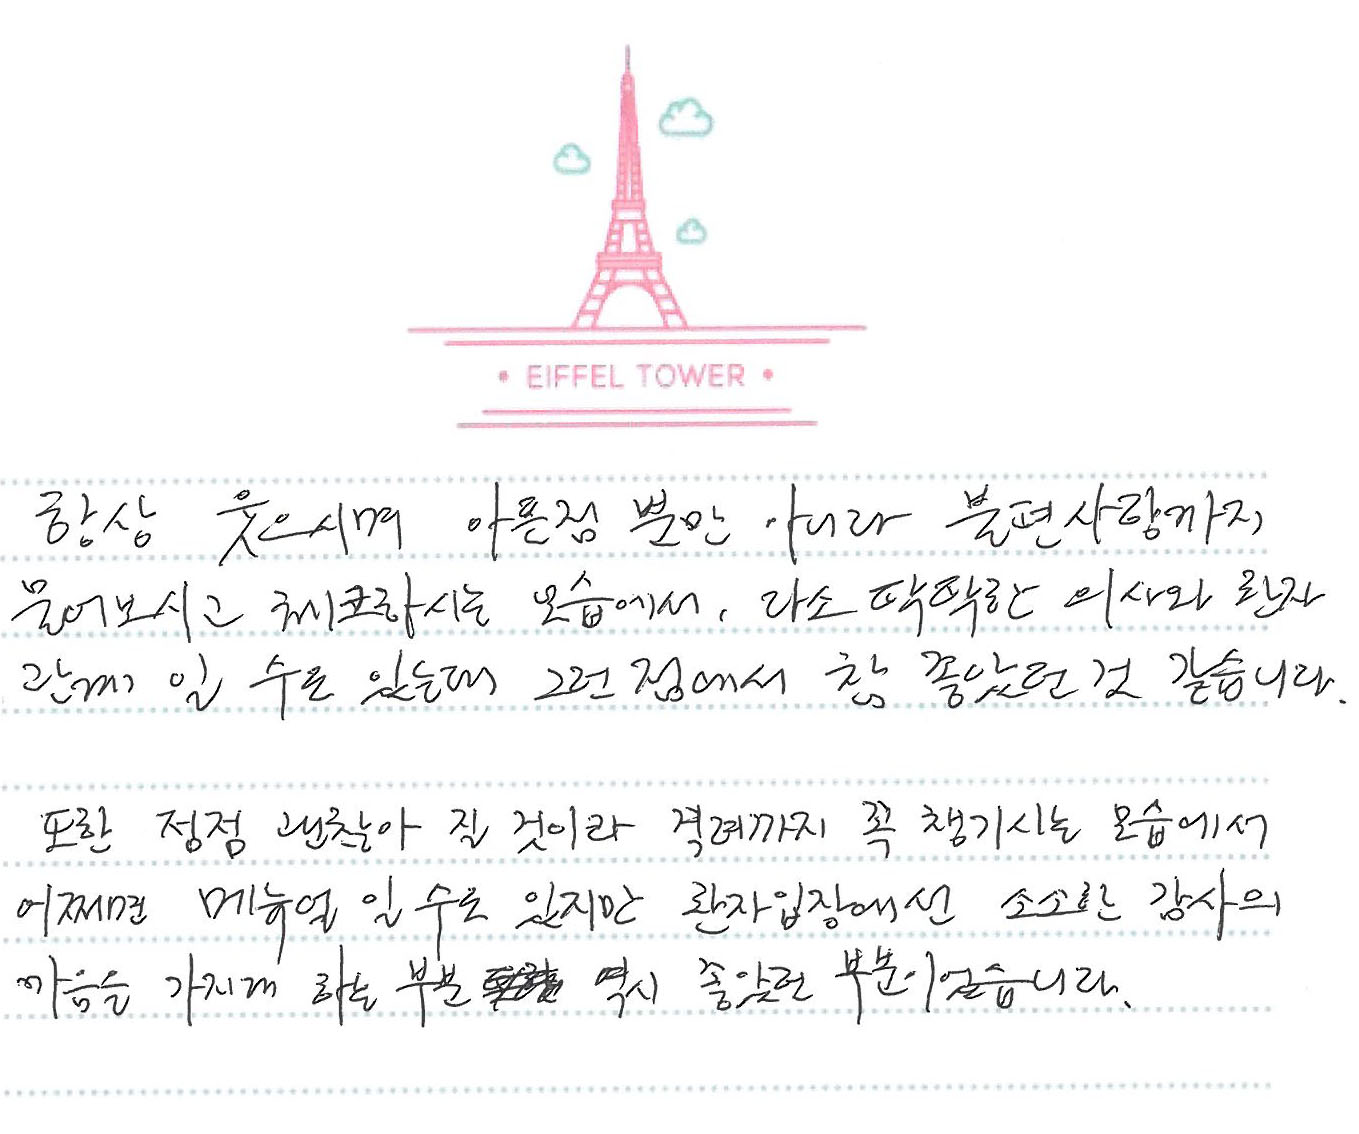 • EIFFEL TOWER •
항상 웃으시며 아픈점 뿐만 아니라 불편사항까지
물어보시고 체크하시는 모습에서, 다소 딱딱한 의사와 환자
관계 일 수도 있는데 그런 점에서 참 좋았던 것 같습니다.
또한 점점 괜찮아 질 것이라 격려까지 꼭 챙기시는 모습에서
어쩌면 메뉴얼 일 수도 있지만 환자입장에선 소소한 감사의
마음을 가지게 하는 부분 역시 좋았던 부분이었습니다.